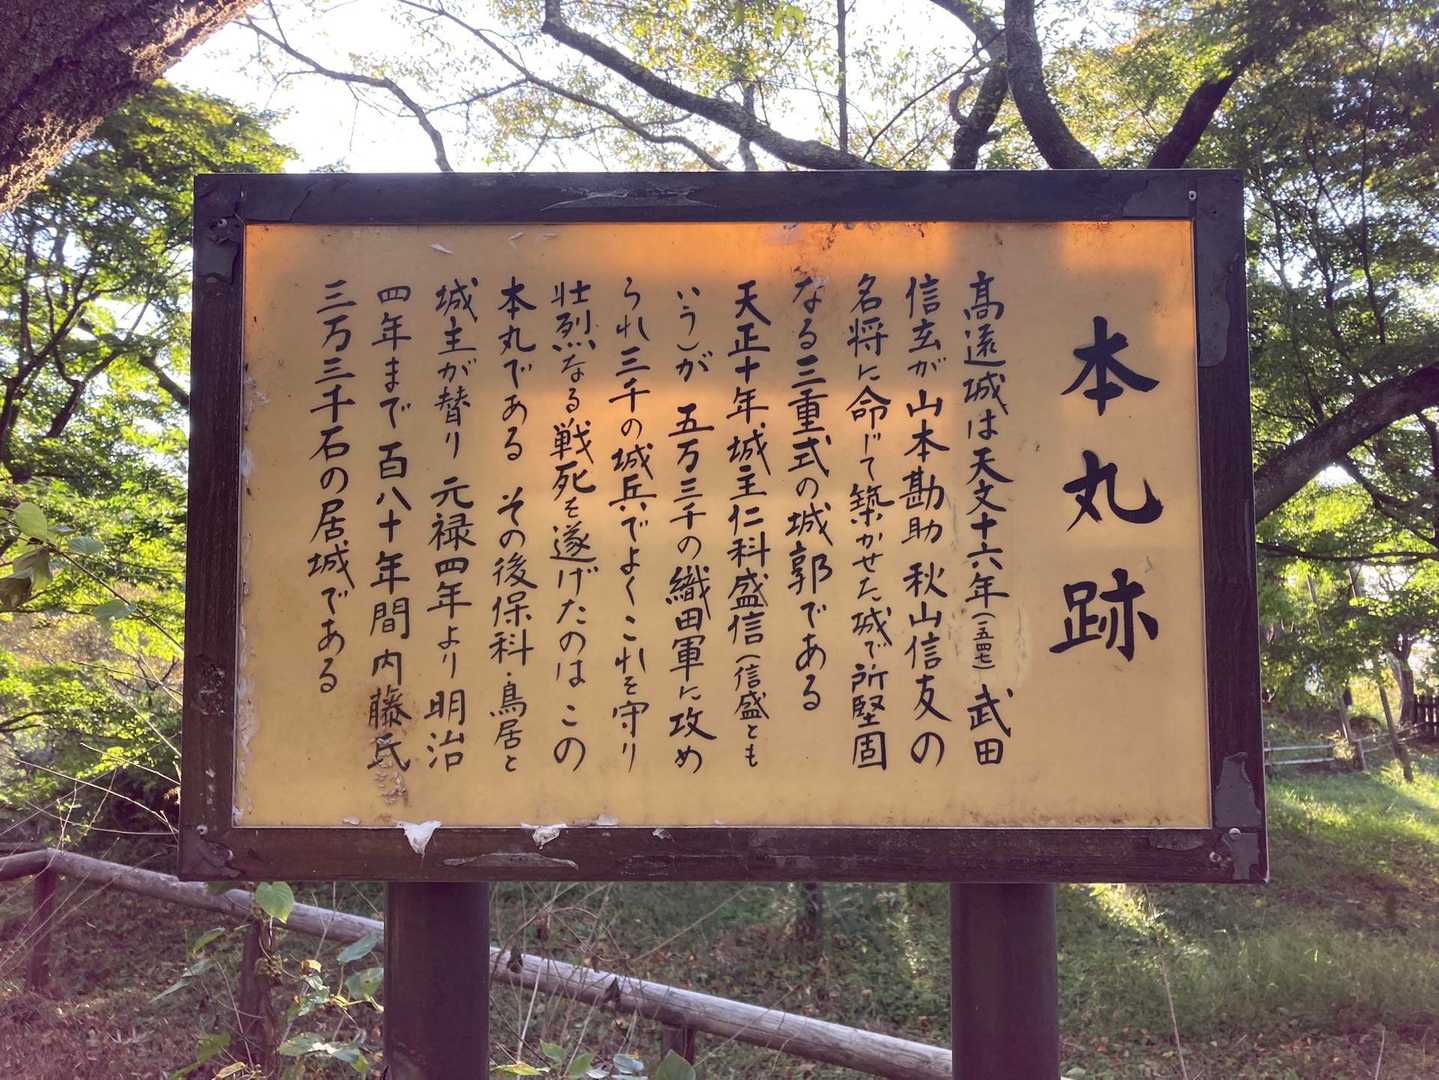 本丸跡
高遠城は天文十六年(一五四七)武田
信玄が山本勘助 秋山信友の
名将に命じて築かせた城で所堅固
なる三重式の城郭である
天正十年城主仁科盛信(信盛とも
いう)が 五万三千の織田軍に攻め
られ三千の城兵でよくこれを守り
壮烈なる戦死を遂げたのはこの
本丸である その後保科・鳥居と
城主が替り 元禄四年より明治
四年まで百八十年間内藤氏
三万三千石の居城である